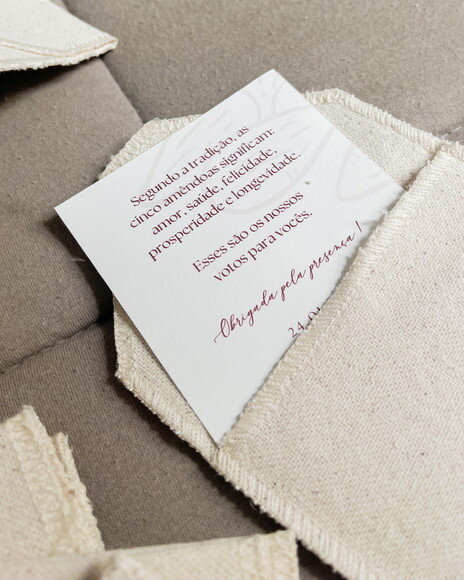 Segundo a tradição, as
cinco amêndoas significam:
amor, saúde, felicidade,
prosperidade e longevidade.
Esses são os nossos
votos para vocês.
Obrigada pela presença!